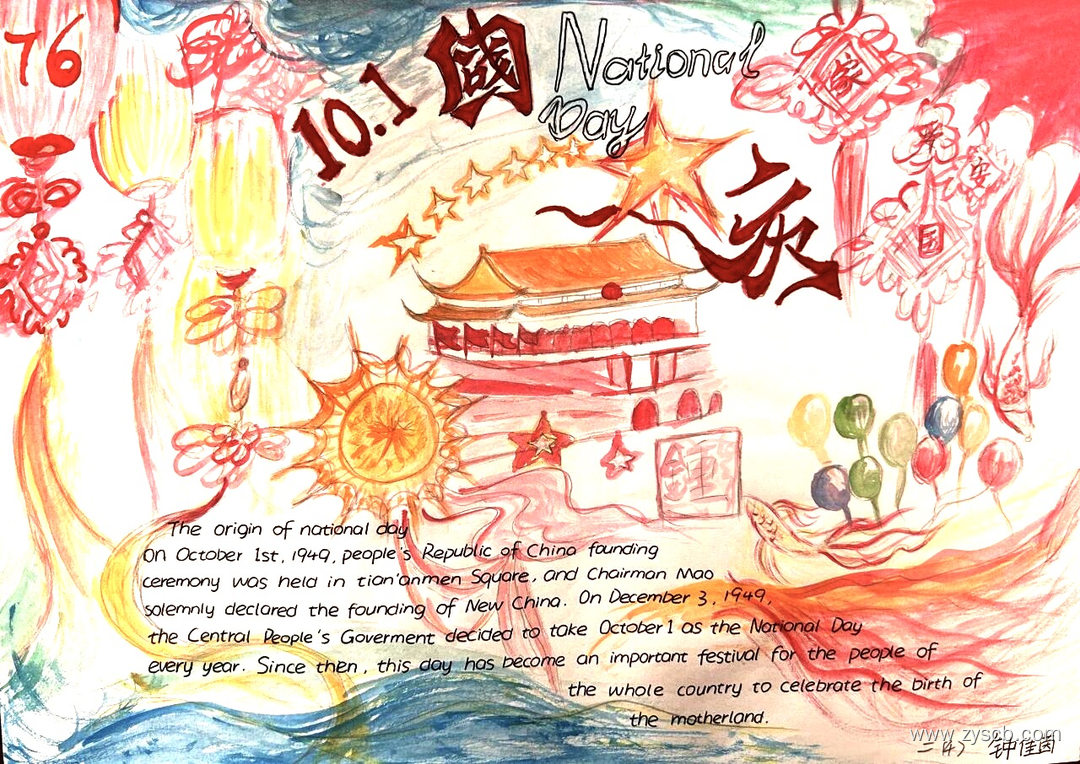 76
10.1
國
National
Day
庆
家
平
安
国
The origin of national day
On October 1st, 1949, people's Republic of China founding
ceremony was held in tian'anmen Square, and Chairman Mao
solemnly declared the founding of New China. On December 3, 1949,
the Central People's Goverment decided to take October 1 as the National Day
every year. Since then, this day has become an important festival for the people of
the whole country to celebrate the birth of
the motherland.
www.zyscb.com
二(4) 钟佳